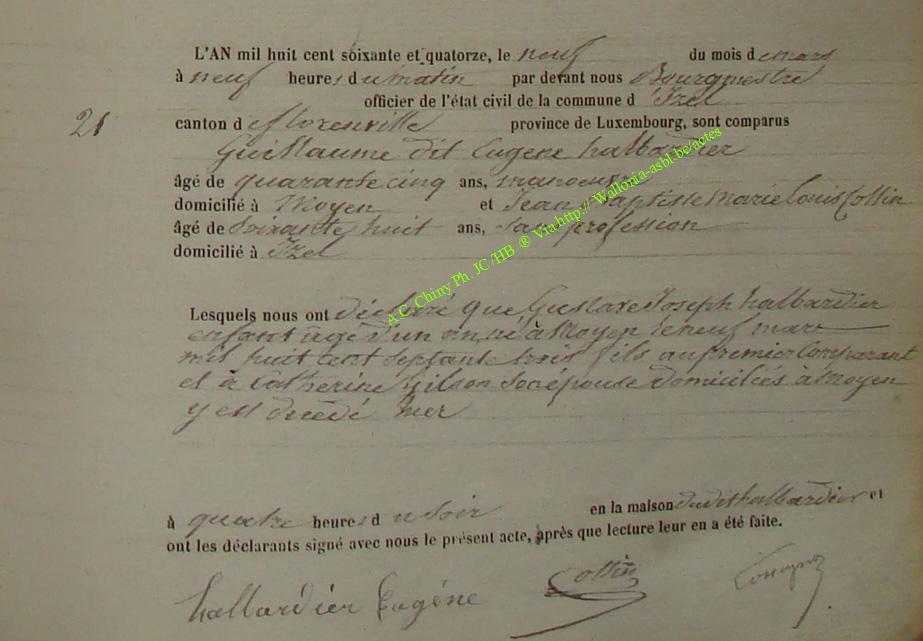 L'AN mil huit cent soixante et quatorze, le neuf du mois de mars
à neuf heures du matin par devant nous Bourgmestre
officier de l'état civil de la commune d'Izel
21 canton de florenville province de Luxembourg, sont comparus
Guillaume dit Eugene halbardier
âgé de quarante cinq ans, manoeuvre
domicilié à Moyen et Jean Baptiste Marie Louis Collin
âgé de Soixante huit ans, Sans profession
domicilié à Izel
Lesquels nous ont déclaré que Gustave Joseph halbardier
enfant âgé d'un an né à Moyen le neuf mars
mil huit cent septante trois fils au premier Comparant
et à Catherine Gilson Son épouse domiciliés à Moyen
y est décédé hier
à quatre heures du Soir en la maison dudit halbardier et
ont les déclarants signé avec nous le présent acte, après que lecture leur en a été faite.
halbardier Eugéne Collin
A.C. Chiny Ph. JC/HB ® Via http:// Wallonia-asbl.be/actes